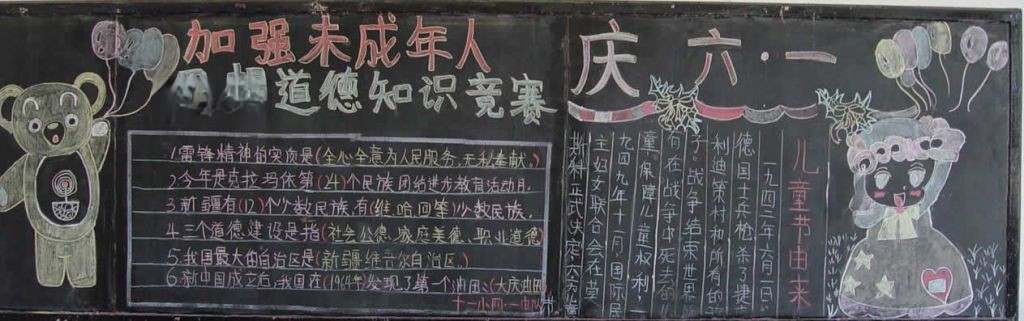 加强未成年人
道德知识竞赛
1雷锋精神的实质是(全心全意为人民服务.无私奉献.)
2今年是克拉玛依第(24)个民族团结进步教育活动月.
3新疆有(12)个少数民族,有(维.哈.回等)少数民族.
4.三个道德建设是指(社会公德.家庭美德.职业道德)
5我国最大的自治区是(新疆维吾尔自治区.)
6.新中国成立后,我国在(1964年发现了第一个油田:(大庆油田
十一小四.一中队
庆六·一
儿童节由来
一九四二年六月一日,
德国士兵枪杀了捷
利迪策村和所有的
子.战争结束世界
有在战争中死去的
童.保障儿童权利,一
九四九年十一月,国际民
主妇女联合会在莫
斯科正式决定六